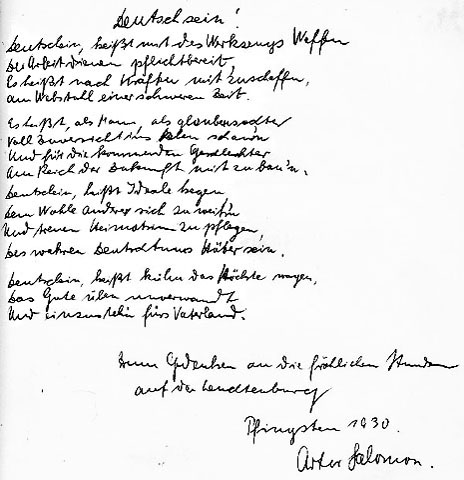 Deutschsein!
Deutschsein, heißt mit des Werkzeugs Waffen
Der Arbeit dienen pflichtbereit,
Es heißt nach Kräften mit zuschaffen,
am Webstuhl einer schweren Zeit.
Es heißt, als Mann, als
Voll Zuversicht ins schaun
Und für die kommenden Geschlechter
Am Reich der Zukunft mit zu bau'n.
Deutschsein, heißt Ideale hegen
Dem Wohle Anderer sich zu weih'n
Und treuen Heimatsinn zu pflegen,
Des wahren Deutschtums Hüter sein.
Deutschsein, heißt kühn das Höchste wagen,
Das Gute üben unverwandt
Und einzustehn fürs Vaterland.
Zum Gedenken an die fröhlichen Stunden
auf der Leuchtenburg
Pfingsten 1930.
Artur Salomon.